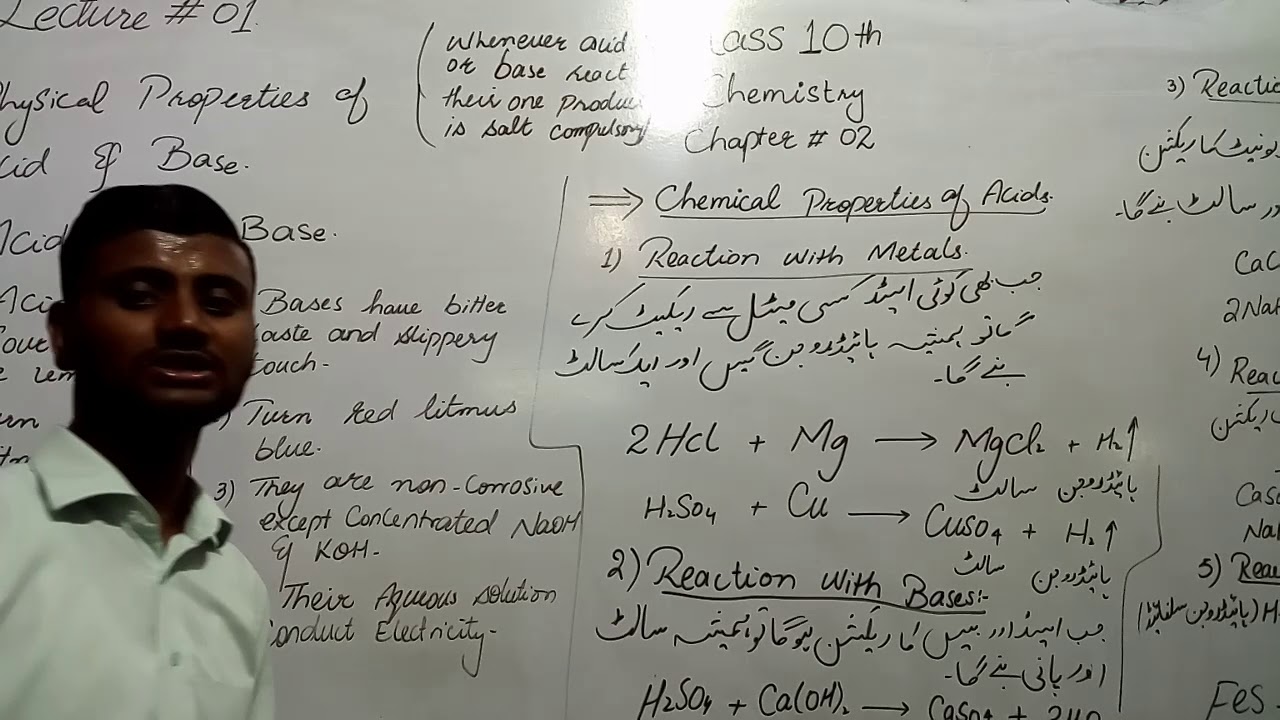 Lecture # 01
Physical Properties of
Acid & Base.
Acid
Base.
Bases have bitter
taste and slippery
touch-
Turn red litmus
blue.
3) They are non-Corrosive
except Concentrated NaOH
& KOH-
Their Aqueous solution
Conduct Electricity-
Whenever acid
or base react
their one produc
is salt compulsory
Class 10th
Chemistry
Chapter # 02
⇒ Chemical Properties of Acids.
1) Reaction with Metals.
جب بھی کوئی ایسڈ کسی میٹل سے ریکیٹ کرے
گا تو ہمیشہ ہائیڈروجن گیس اور ایک سالٹ
بنے گا۔
2Hcl + Mg → MgCl₂ + H₂↑
سالٹ ہائیڈروجن
H₂SO₄ + Cu → CuSO₄ + H₂↑
سالٹ ہائیڈروجن
2) Reaction with Bases:-
جب ایسڈ اور بیس کا ریکیشن ہوگا تو ہمیشہ سالٹ
اور پانی بنے گا۔
H₂SO₄ + Ca(OH)₂ → CaSO₄ +
3) Reactio
کا ریکشن
اور سالٹ بنے گا۔
CaC
2Na
4) Reac
ریکشن
Nal
5) Rea
(ہائیڈروجن سلفائیڈ) H
FeS